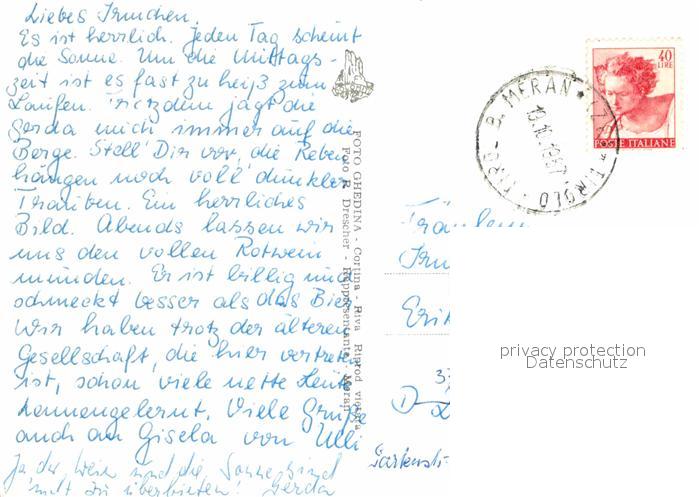 Liebes Irmchen,
Es ist herrlich. Jeden Tag scheint
die Sonne. Um die Mittags-
zeit ist es fast zu heiß zum
Laufen. Trotzdem jagt die
Gerda mich immer auf die
Berge. Stell' Dir vor, die Reben
hängen noch voll dunkler
Trauben. Ein herrliches
Bild. Abends lassen wir
uns den vollen Rotwein
munden. Er ist billig und
schmeckt besser als das Bier.
Wir haben trotz der älteren
Gesellschaft, die hier vertreten
ist, schon viele nette Leute
kennengelernt. Viele Grüße
auch an Gisela von Ulli
Ja der Wein und die Sonne sind
nicht zu überbieten! Gerda
FOTO GHEDINA - Cortina - Riva Riprod vietata
Foto R. Drescher - Rappresentante - Meran
40
LIRE
POSTE ITALIANE
B. MERAN
TIROLO - TIROL
1967
Fräulein
Irm
Eri
37
D-
Gartenstr
privacy protection
Datenschutz